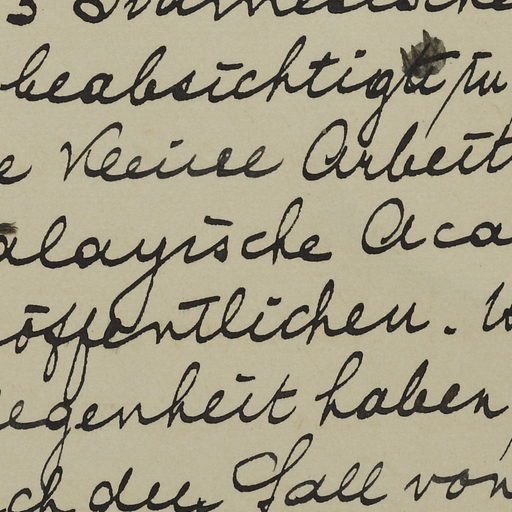 beabsichtigt, in
e kleine Arbeit
alayische Aca
öffentlichen.
legenheit haben,
ch den Fall von